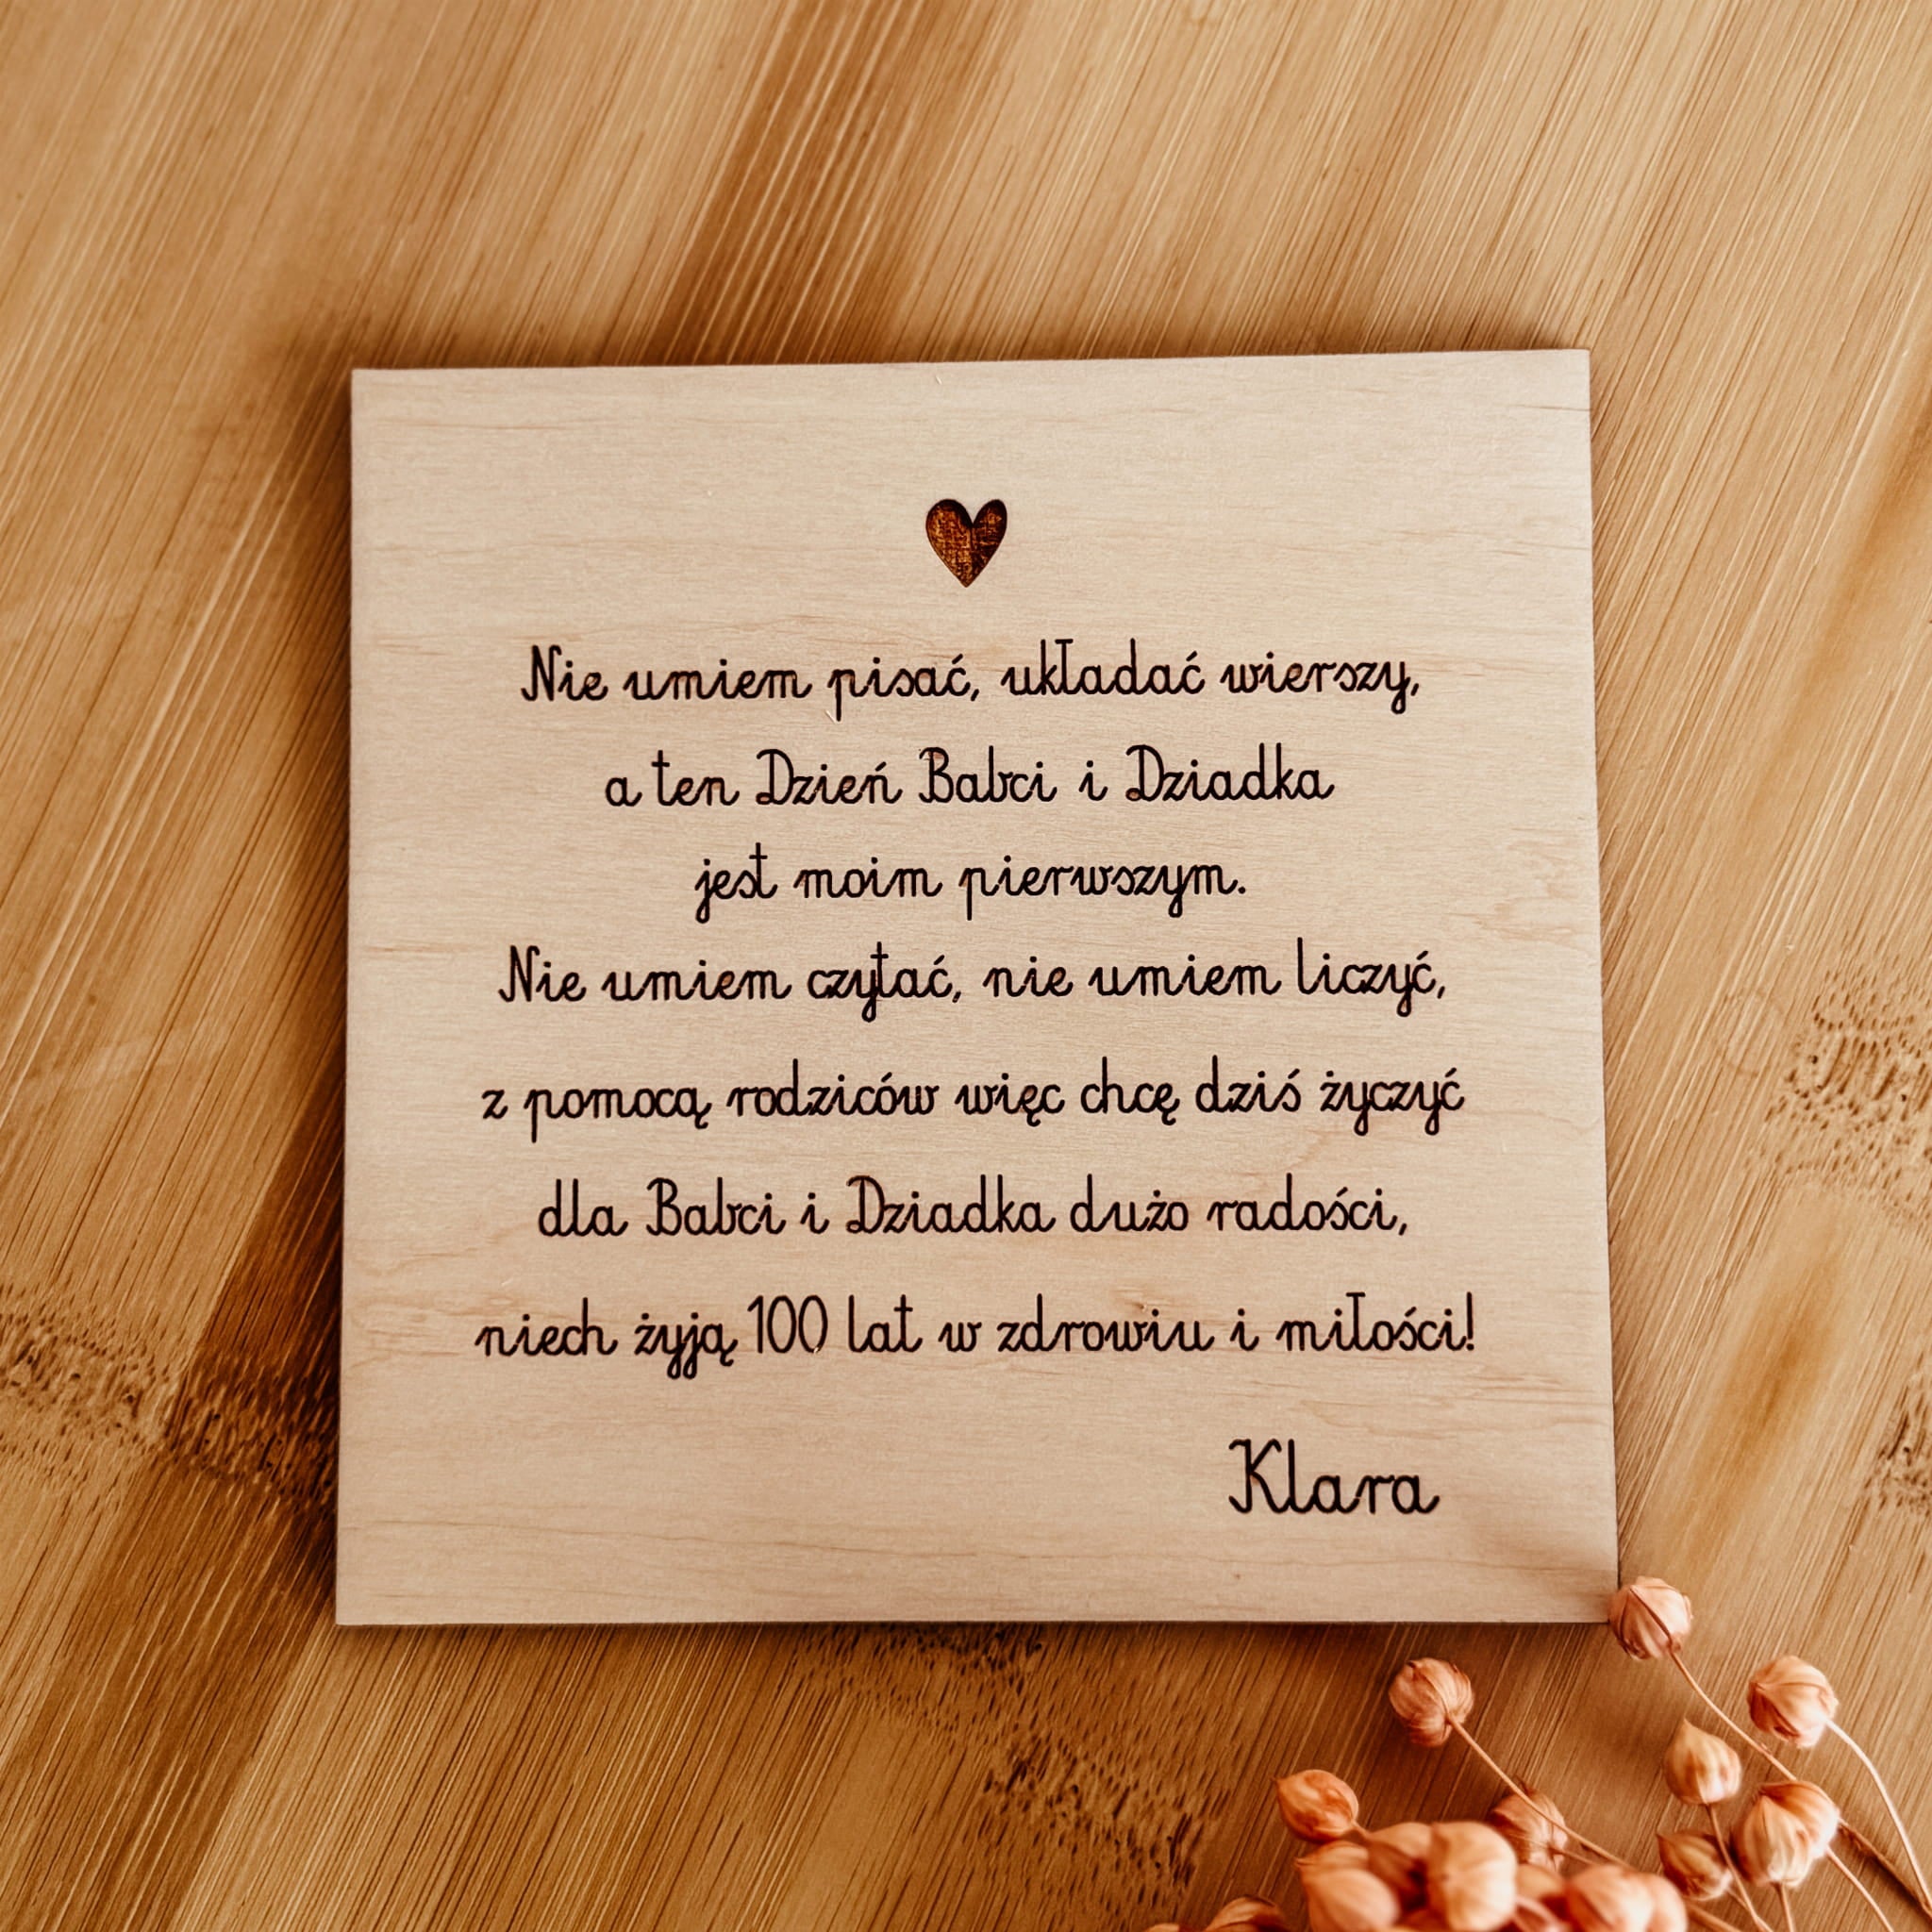 Nie umiem pisać, układać wierszy,
a ten Dzień Babci i Dziadka
jest moim pierwszym.
Nie umiem czytać, nie umiem liczyć,
z pomocą rodziców więc chcę dziś życzyć
dla Babci i Dziadka dużo radości,
niech żyją 100 lat w zdrowiu i miłości!
Klara